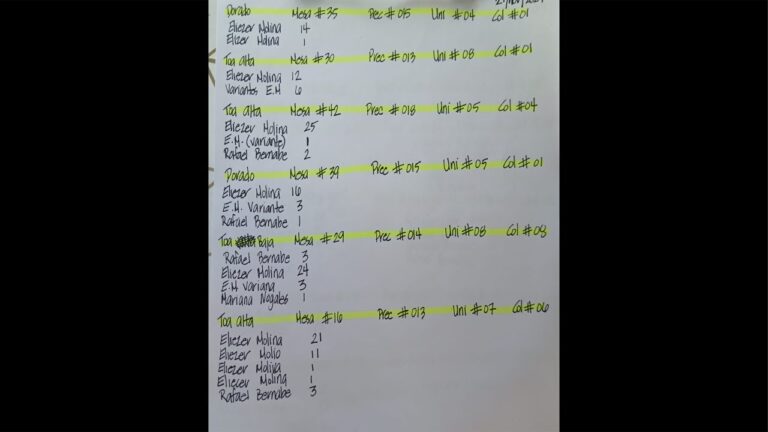 Dorado Mesa #35 Prec #015 Uni #04 Col #01
Eliezer Molina 14
Elizer Molina 1
Toa Alta Mesa #30 Prec #013 Uni #08 Col #01
Eliezer Molina 12
Variantes E.M 6
Toa Alta Mesa #42 Prec #018 Uni #05 Col #04
Eliezer Molina 25
E.M. (variante) 1
Rafael Bernabe 2
Dorado Mesa #39 Prec #015 Uni #05 Col #01
Eliezer Molina 16
E.M. Variante 3
Rafael Bernabe 1
Toa Baja Mesa #29 Prec #014 Uni #08 Col #08
Rafael Bernabe 3
Eliezer Molina 24
E.M Variana 3
Mariana Nogales 1
Toa Alta Mesa #16 Prec #013 Uni #07 Col #06
Eliezer Molina 21
Eliezer Molio 11
Eliezer 1
Eliecer Molina 1
Rafael Bernabe 3